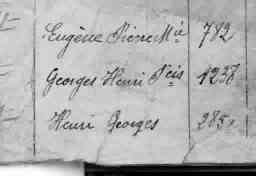 Eugène Pierre Mie 782
Georges Henri Fcis 1238
Henri Georges 285